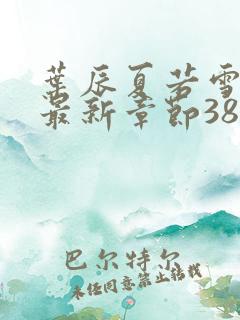 葉辰夏若雪
最新章節38
巴尔特尔
未经同意禁止转载